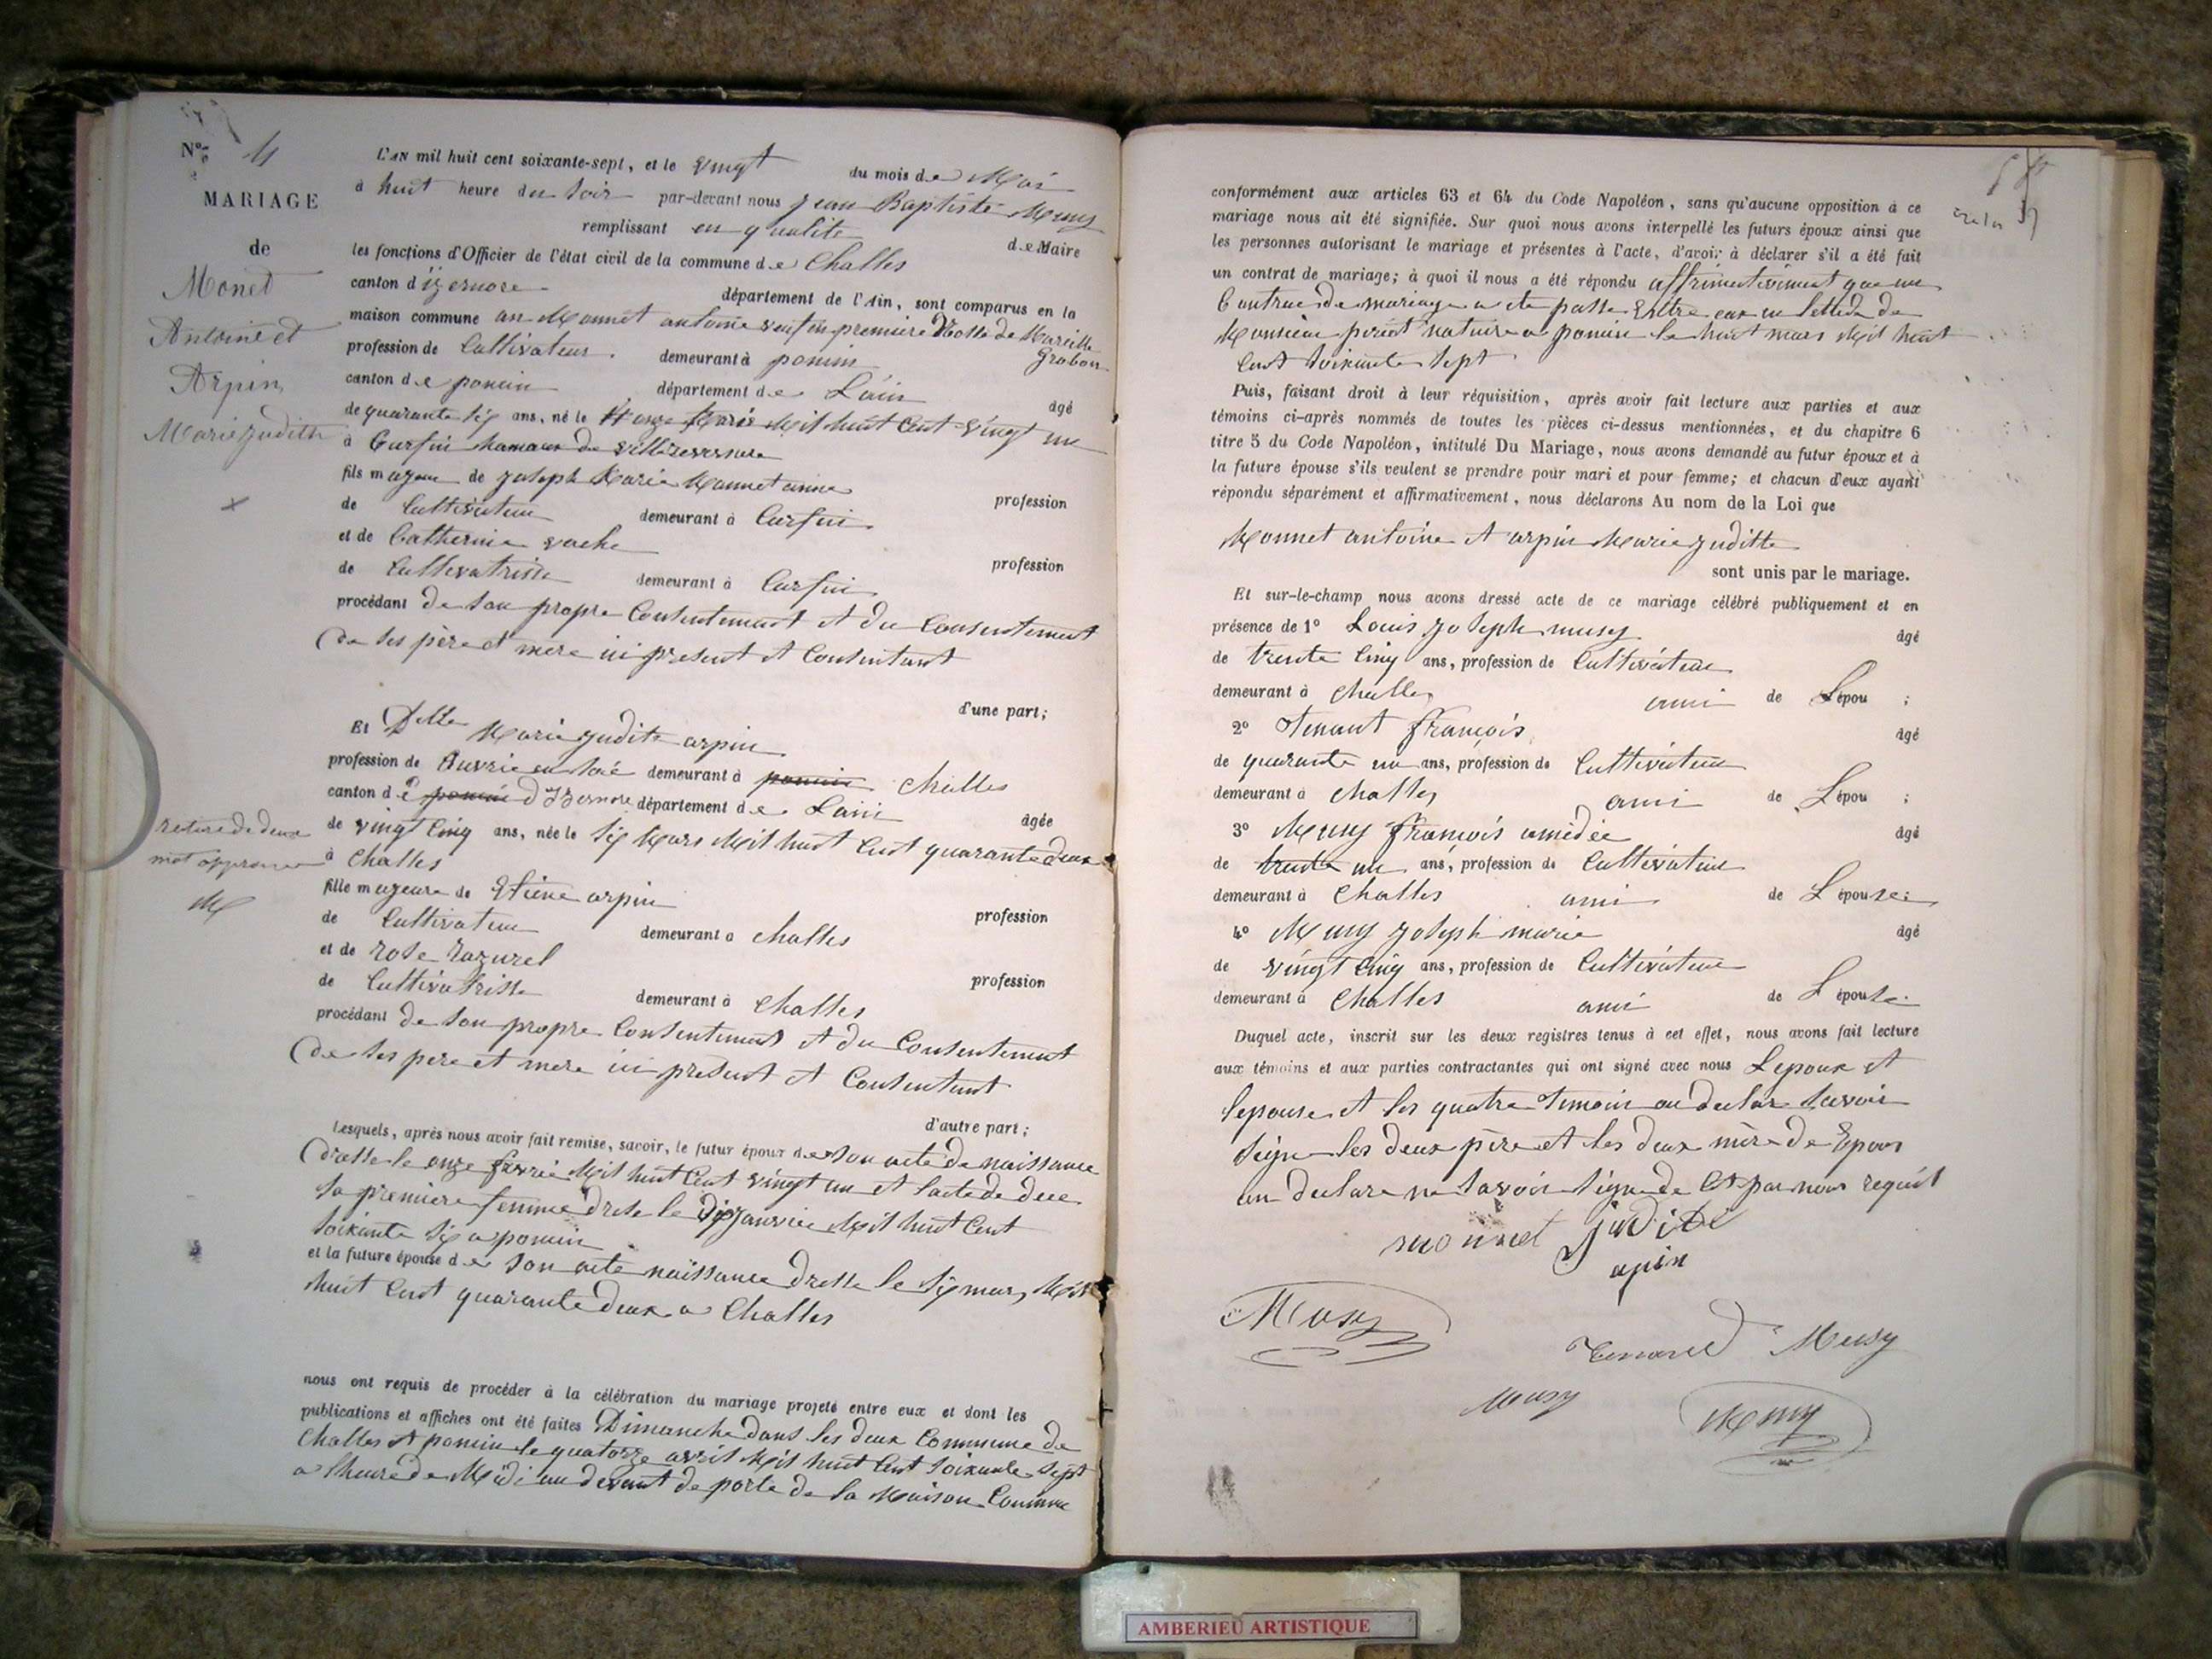 N° 4
MARIAGE
de
Monet
Antoine et
Arpin
Marie Judith
L'AN mil huit cent soixante-sept, et le vingt du mois de Mai
à huit heure du soir par-devant nous Jean Baptiste Musy
remplissant en qualité de Maire
les fonctions d'Officier de l'état civil de la commune de Challes
canton d'izernore département de l'Ain, sont comparus en la
maison commune Monnet antoine veuf en premiere de Mariette Grobon
profession de Cultivateur demeurant à poncin
canton de poncin département de Lain âgé
de quarante six ans, né le onze mil huit Cent vingt un
à Curfin hamaux de villereversure
fils majeur de joseph Marie Monnet
profession de Cultivateur demeurant à Curfin
et de Catherine vache
profession de Cultivatrisse demeurant à Curfin
procédant de son propre Consentement et du Consentement
de ses père et mere ici present et Consentant
d'une part;
Et Delle Marie Judite arpin
profession de Ouvrie en soie demeurant à poncin Challes
canton de poncin d'Izernore département de Lain âgée
de vingt Cinq ans, née le Six Mars Mil huit Cent quarante deux
à Challes
rature de deux
mot approuvé
M
fille majeure de Etiene arpin
profession de Cultivateur demeurant à Challes
et de rose razurel
profession de Cultivatrisse demeurant à Challes
procédant de son propre Consentement et du Consentement
de ses pere et mere ici present et Consentant
d'autre part;
Lesquels, après nous avoir fait remise, savoir, le futur époux de son acte de naissance
dresse le onze fevrie Mil huit Cent vingt un et lacte de dece
sa premiere femme drese le Dix janvrie Mil huit Cent
soixante six a poncin
et la future épouse de son acte naissance dresse le six mars Mil
huit Cent quarante deux a Challes
nous ont requis de procéder à la célébration du mariage projeté entre eux et dont les
publications et affiches ont été faites Dimanche dans les deux Commune de
Challes et poncin le quatorze avril Mil huit Cent soixante sept
a lheure de Midi au devant de porte de la Maison Commune
conformément aux articles 63 et 64 du Code Napoléon, sans qu'aucune opposition à ce
mariage nous ait été signifiée. Sur quoi nous avons interpellé les futurs époux ainsi que
les personnes autorisant le mariage et présentes à l'acte, d'avoir à déclarer s'il a été fait
un contrat de mariage; à quoi il nous a été répondu affirmativement que un
Contrac de mariage a ete passe Entre eux en lettude de
Monsieur notaire a poncin le huit mars Mil huit
Cent soixante sept
Puis, faisant droit à leur réquisition, après avoir fait lecture aux parties et aux
témoins ci-après nommés de toutes les pièces ci-dessus mentionnées, et du chapitre 6
titre 5 du Code Napoléon, intitulé Du Mariage, nous avons demandé au futur époux et à
la future épouse s'ils veulent se prendre pour mari et pour femme; et chacun d'eux ayant
répondu séparément et affirmativement, nous déclarons Au nom de la Loi que
Monnet antoine et arpin Marie juditte
sont unis par le mariage.
Et sur-le-champ nous avons dressé acte de ce mariage célébré publiquement et en
présence de 1° Louis joseph musy âgé
de trente Cinq ans, profession de Cultivateur
demeurant à Challes ami de Lépou ;
2° Tenant françois âgé
de quarante un ans, profession de Cultivateur
demeurant à Challes ami de Lépou ;
3° Musy françois amédée âgé
de trente un ans, profession de Cultivateur
demeurant à Challes ami de L'épouse;
4° Musy joseph marie âgé
de vingt Cinq ans, profession de Cultivateur
demeurant à Challes ami de L'épouse.
Duquel acte, inscrit sur les deux registres tenus à cet effet, nous avons fait lecture
aux témoins et aux parties contractantes qui ont signé avec nous Lepoux et
lepouse et les quatre temoin on declar savoir
signe les deux père et les deux mère de Epous
on declare ne savoir signe de Ce par nous requit
monnet judite
apin
Musy
Tenand Musy
Musy
Musy
AMBERIEU ARTISTIQUE